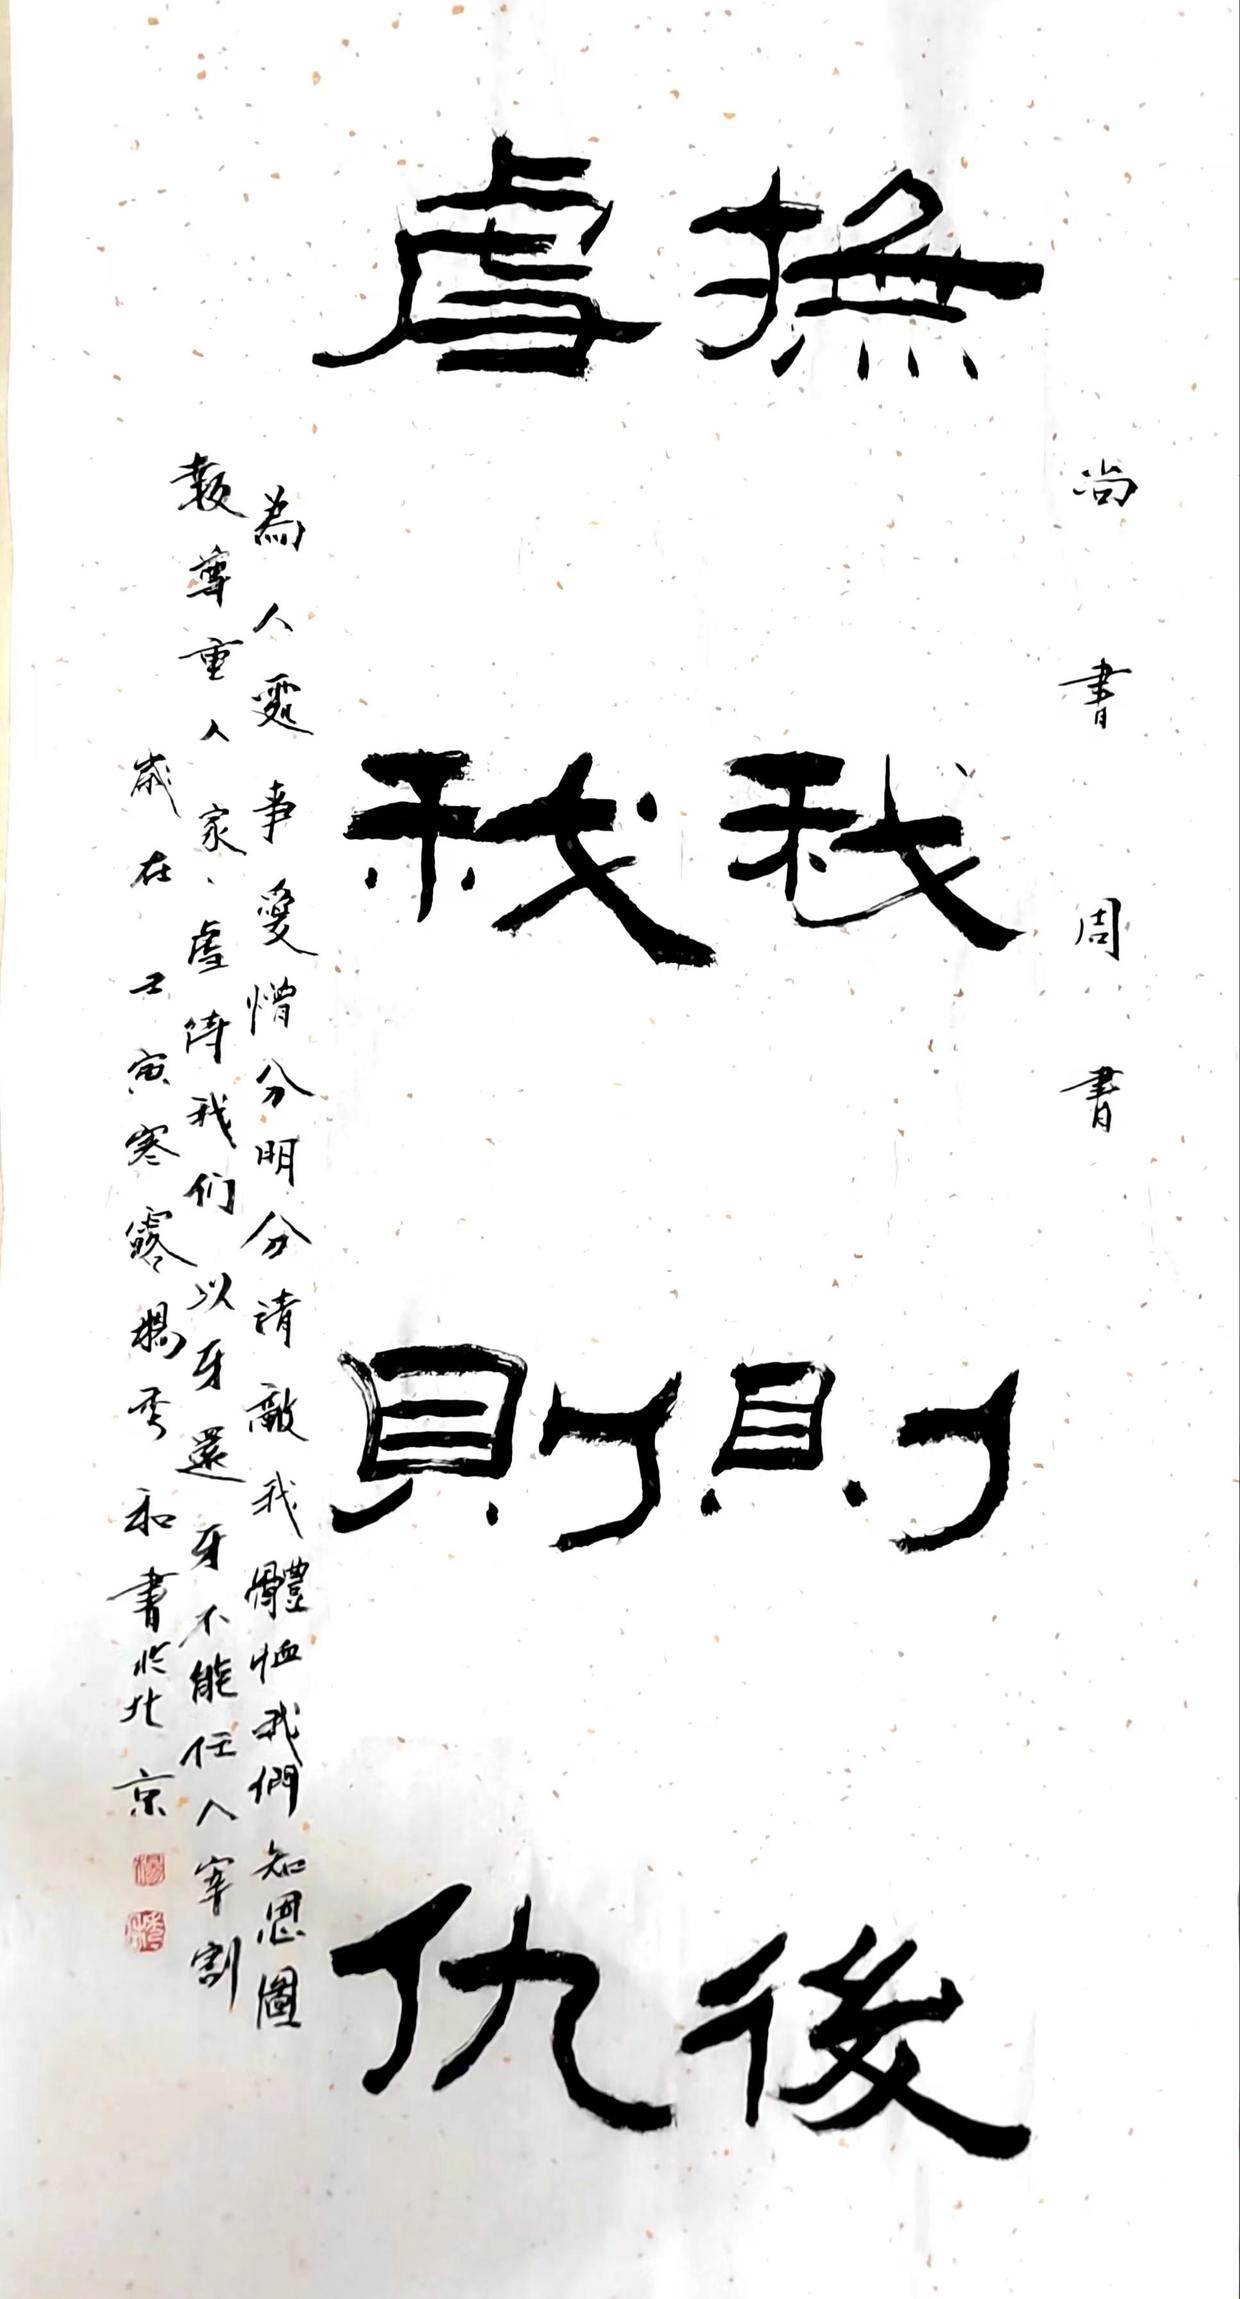 尚書周書
撫我則後
虐我則仇
為人處事愛憎分明分清敵我體恤我們知恩圖
報尊重人家、虐待我们以牙還牙不能任人宰割
歲在壬寅寒露楊秀和書於北京
楊